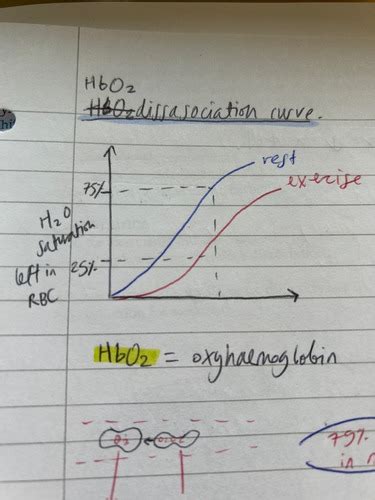 HbO2
HbO2 dissasociation curve.
rest
75%
exercise
H2O
saturation
left in
RBC
25%
HbO2 = oxyhaemoglobin
O2
79%
in